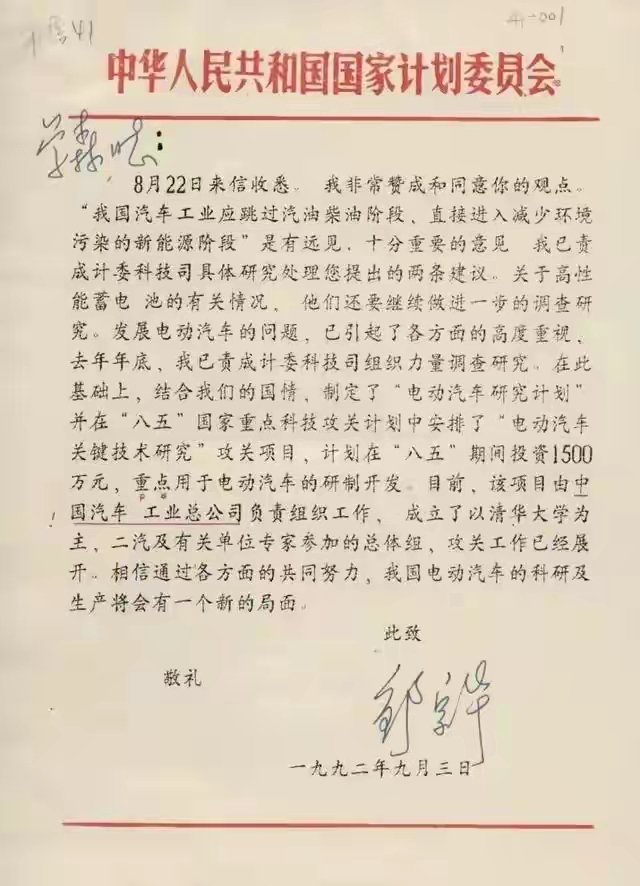 41
41-001
中华人民共和国国家计划委员会
学森同志：
8月22日来信收悉。 我非常赞成和同意你的观点。
“我国汽车工业应跳过汽油柴油阶段、直接进入减少环境
污染的新能源阶段”是有远见、十分重要的意见 我已责
成计委科技司具体研究处理您提出的两条建议。关于高性
能蓄电 池的有关情况， 他们还要继续做进一步的调查研
究。发展电动汽车的问题，已引起了各方面的高度重视、
去年年底，我已责成计委科技司组织力量调查研究。在此
基础上，结合我们的国情，制定了“电动汽车研究计划”
并在“八五”国家重点科技攻关计划中安排了“电动汽车
关键技术研究”攻关项目，计划在“八五”期间投资1500
万元，重点用于电动汽车的研制开发。目前、该项目由中
国汽车 工业总公司负责组织工作， 成立了以清华大学为
主、二汽及有关单位专家参加的总体组、攻关工作已经展
开。相信通过各方面的共同努力，我国电动汽车的科研及
生产将会有一个新的局面。
此致
敬礼
邹家华
一九九二年九月三日